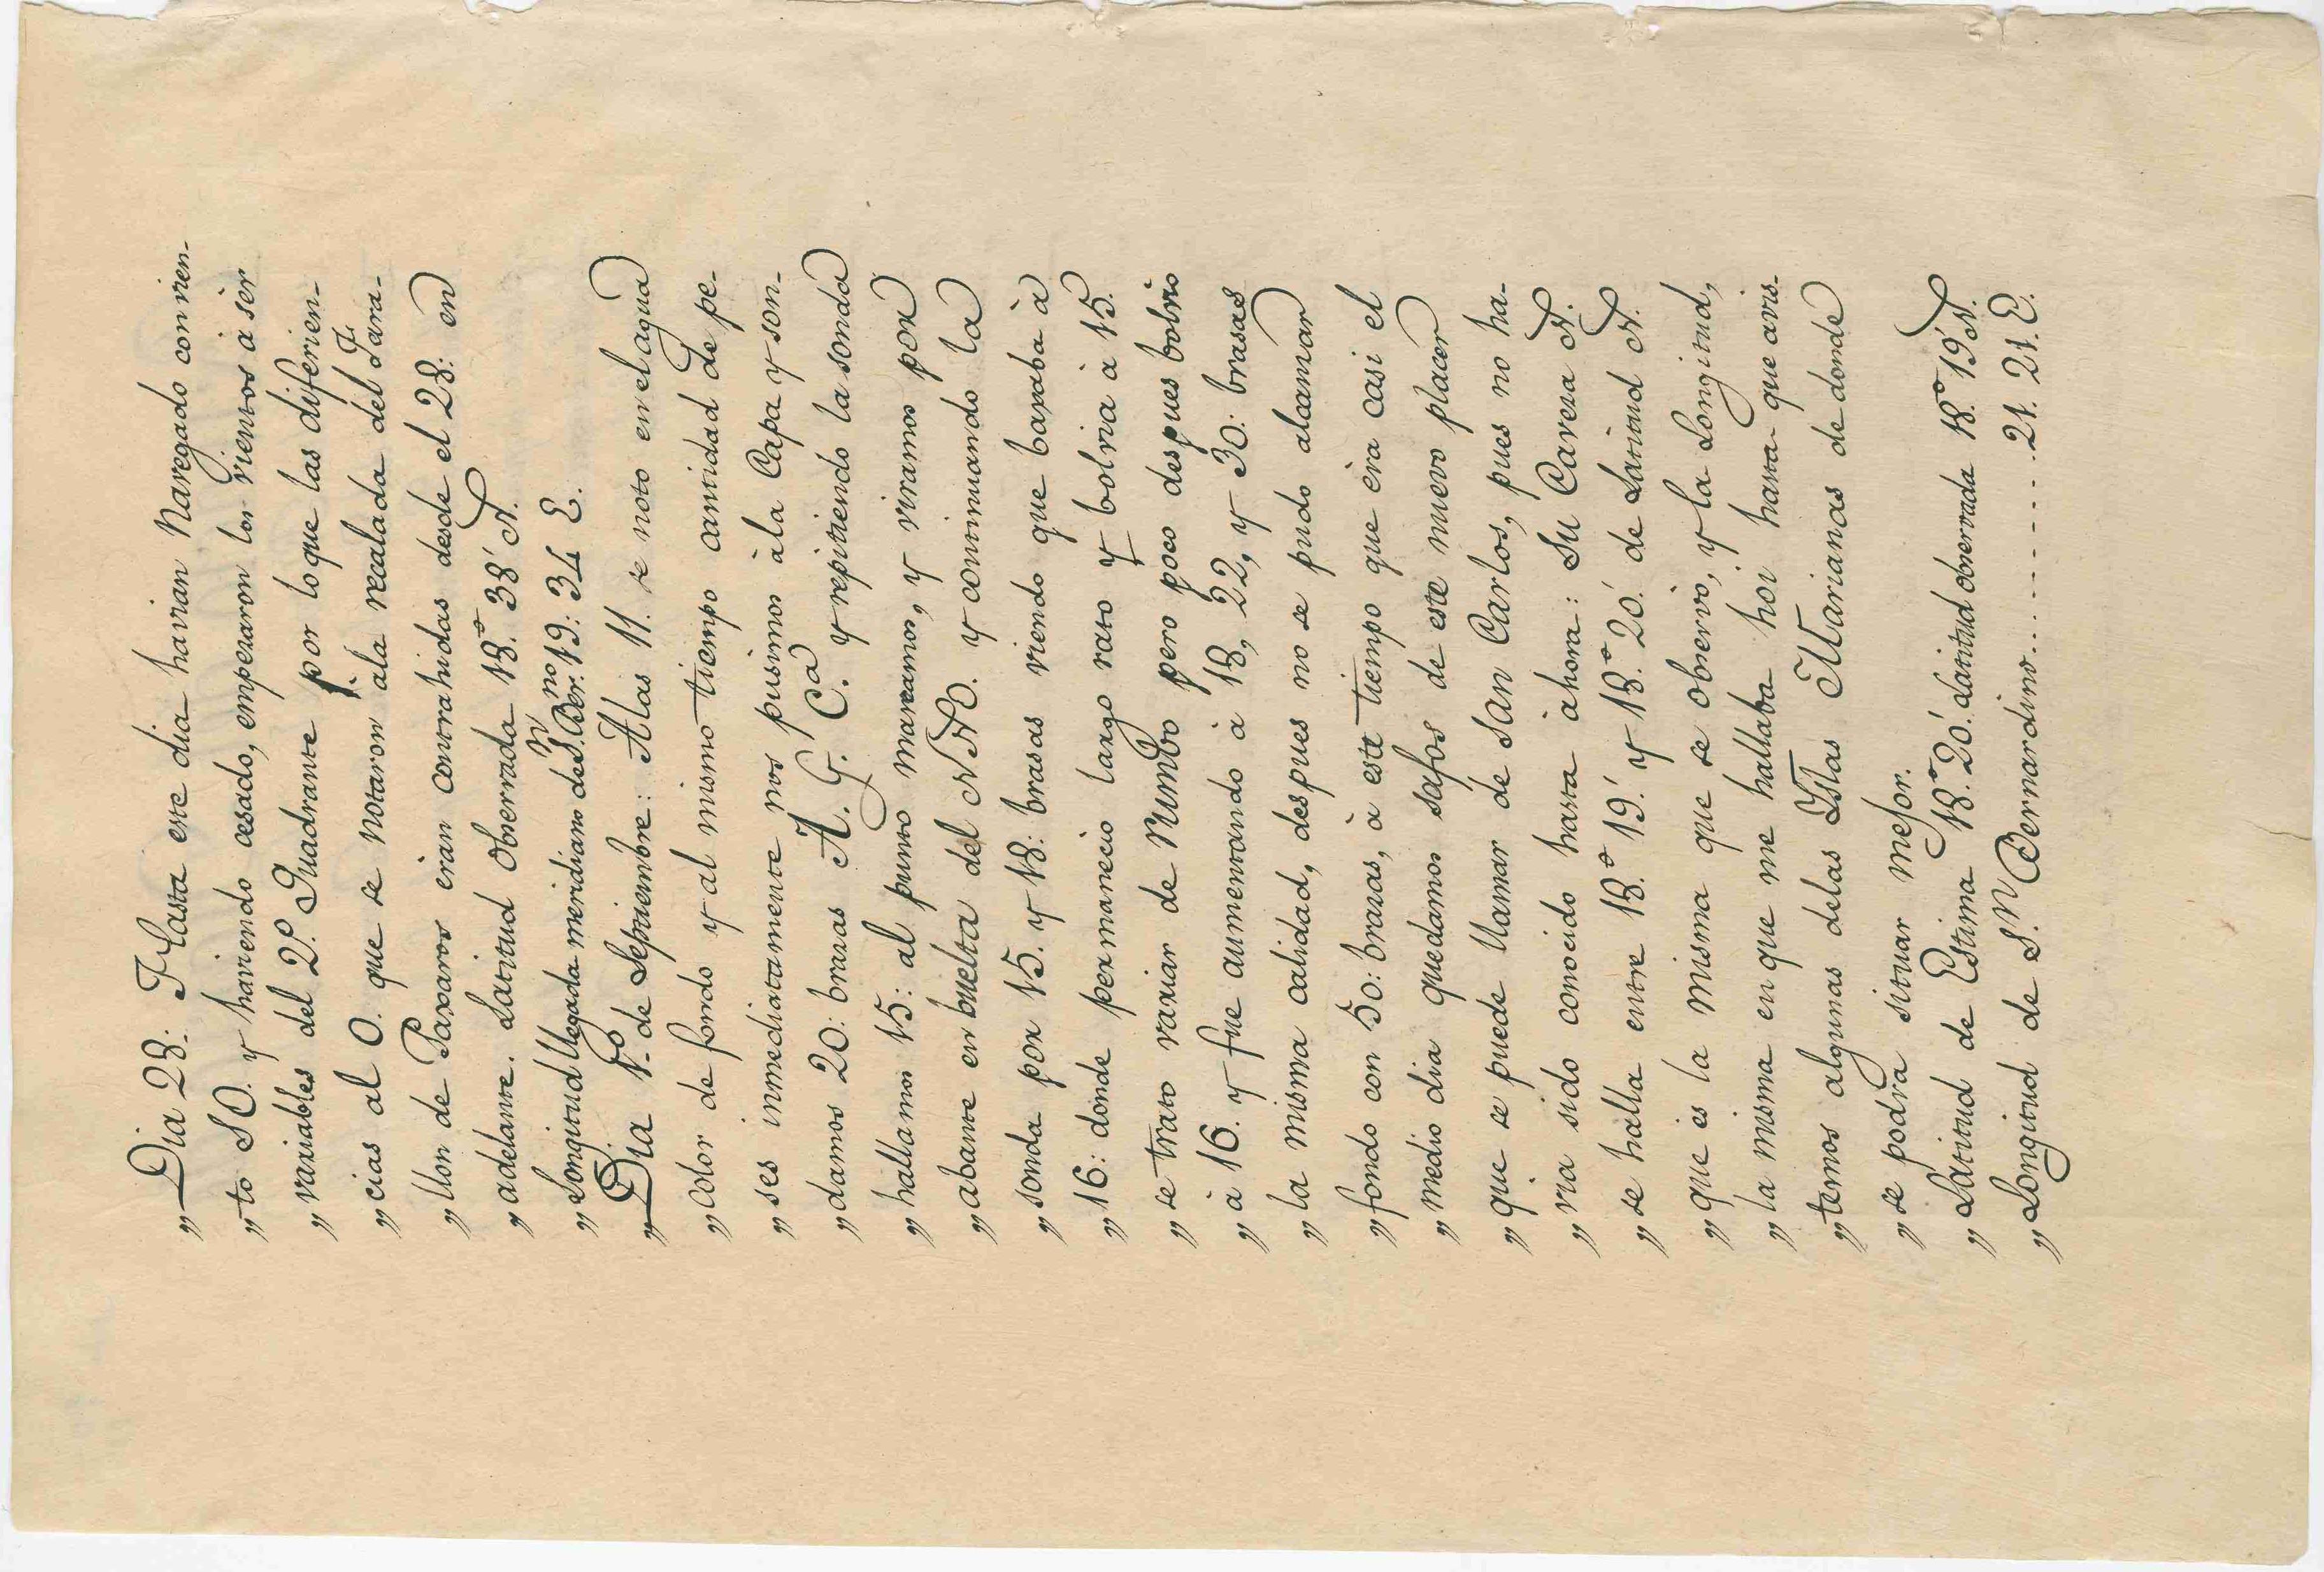 „Dia 28: Hasta este dia havian Navegado con vien-
„to SO. y haviendo cesado, empezaron los vientos à ser
„variables del 2º. Quadrante por lo que las diferien-
„cias al O. que se notaron àla recalada del Fara-
„llon de Paxaros èran contrahidas desde el 28: en
„adelante. Latitud Observada 18.º 38' N.
„Longitud llegada meridiano de S.n Ber.no 19: 34 E.
„Dia 1º. de Septiembre: Alas 11. se noto en el agua
„color de fondo y al mismo tiempo cantidad de pe-
„ses inmediatamente nos pusimos àla Capa y son-
„damos 20: brazas A. G. Cª. y repitiendo la sonda
„hallamos 15: al punto mareamos, y viramos por
„abante en buelta del NNO. y continuando la
„sonda por 15. y 18: brasas viendo que baxaba à
„16: donde permanecio largo rato y bolvia à 15.
„se trato variar de Rumbo pero poco despues bolvio
„à 16. y fue aumentando à 18, 22, y 30: brasas
„la misma calidad, despues no se pudo alcanzar
„fondo con 50: brazas, à este tiempo que èra casi el
„medio dia quedamos safos de este nuevo placer
„que se puede llamar de San Carlos, pues no ha-
„via sido conocido hasta àhora: Su Cavera N.
„se halla entre 18.º 19.' y 18.º 20.' de Latitud N.
„que es la misma que se observo, y la Longitud,
„la misma en que me hallaba hoi hasta que avis-
„temos algunas delas Islas Marianas de donde
„se podra situar mejor.
„Latitud de Estima 18.º 20.' Latitud observada 18.º 19' N.
„Longitud de S.n Bernardino. . . . . . . . 21. 21. E.